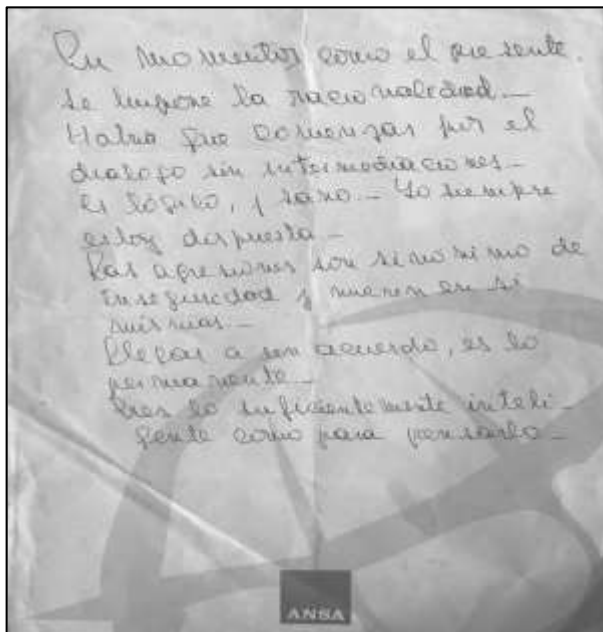 En momentos como el presente.
se impone la racionalidad_
Habra que comenzar por el
dialogo sin intermediaciones_
es lógico, y sano._ Yo siempre
estoy dispuesta_
Las agresiones son sinonimo de
inseguridad y mueren en si
mismas._
Llegar a un acuerdo, es lo
permanente_
Eres lo suficientemente inteli-
gente como para pensarlo_
ANSA